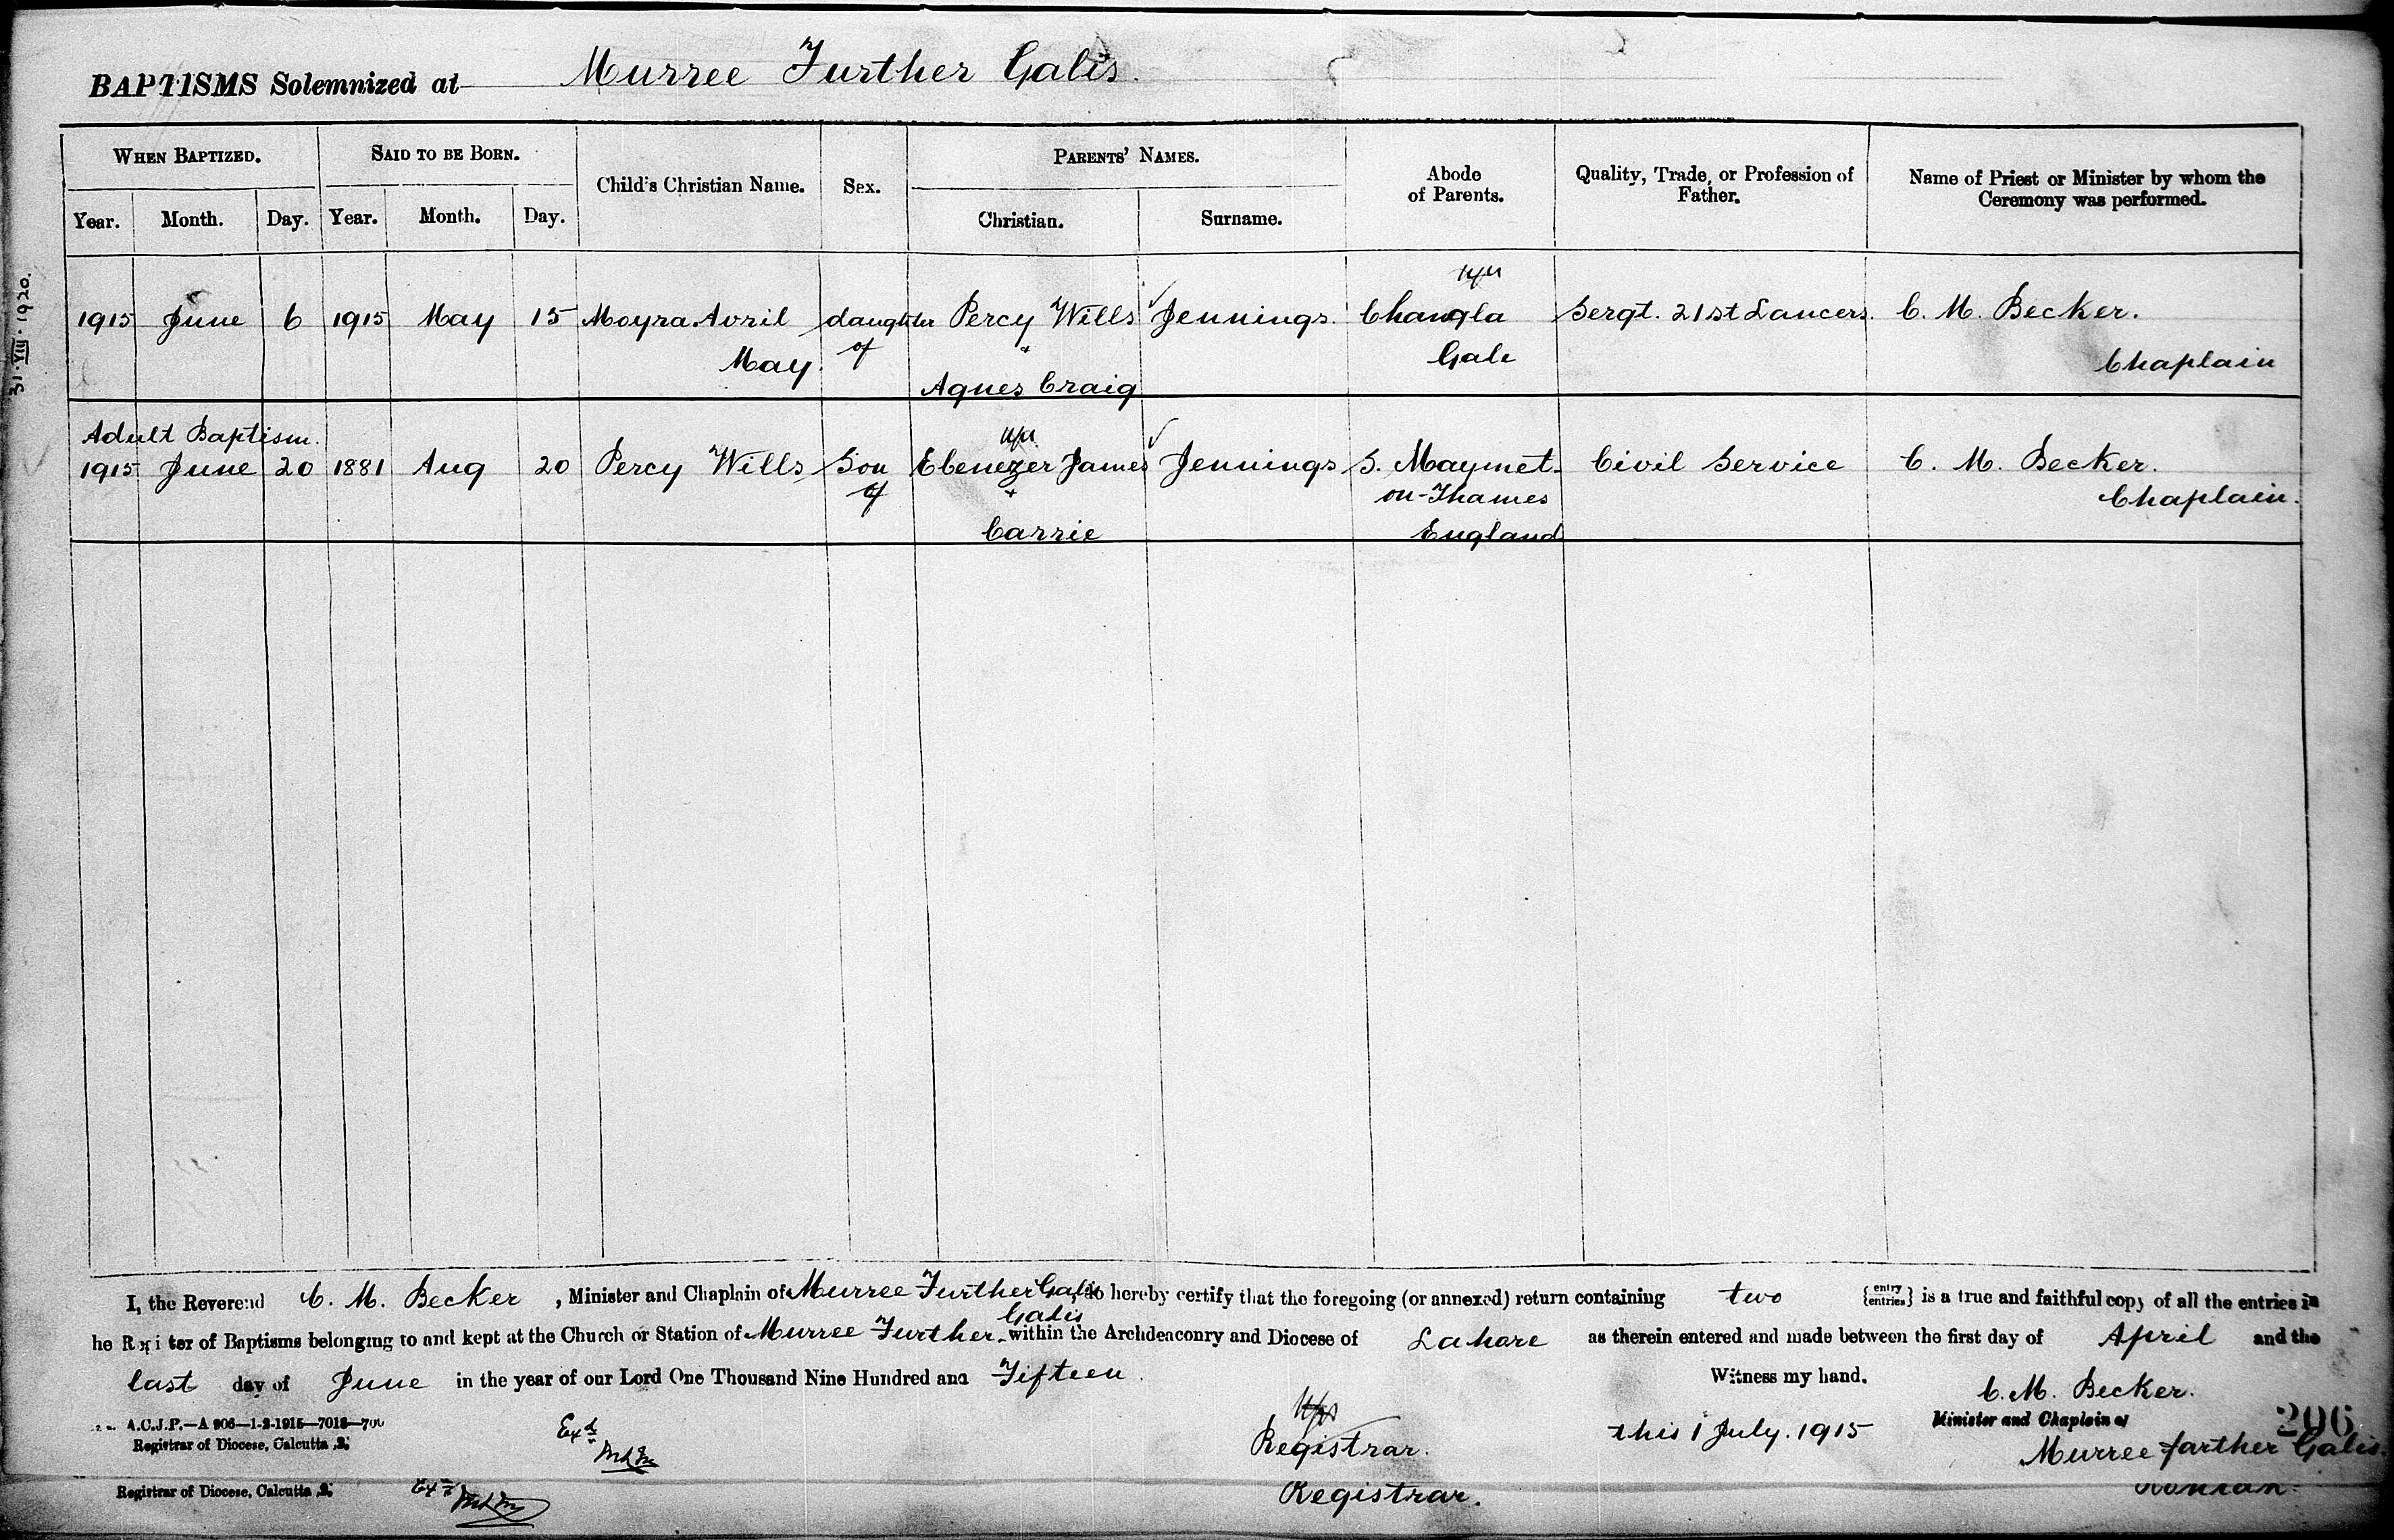 BAPTISMS Solemnized at Murree Further Galis.
WHEN BAPTIZED. SAID TO BE BORN. Child's Christian Name. Sex. PARENTS' NAMES. Abode of Parents. Quality, Trade, or Profession of Father. Name of Priest or Minister by whom the Ceremony was performed.
Year. Month. Day. Year. Month. Day. Christian. Surname.
31.VIII.1920.
1915 June 6 1915 May 15 Moyra Avril daughter Percy Wills Jennings. Changla Sergt. 21st Lancers. C. M. Becker.
May. of + Gale Chaplain
Agnes Craig
Adult Baptism.
1915 June 20 1881 Aug 20 Percy Wills Son Ebenezer James Jennings S. Maymet- Civil Service C. M. Becker.
of + on-Thames Chaplain.
Carrie England
I, the Reverend C. M. Becker, Minister and Chaplain of Murree Further Galis do hereby certify that the foregoing (or annexed) return containing two {entry entries} is a true and faithful copy of all the entries in
Galis
he Register of Baptisms belonging to and kept at the Church or Station of Murree Further within the Archdeaconry and Diocese of Lahore as therein entered and made between the first day of April and the
last day of June in the year of our Lord One Thousand Nine Hundred and Fifteen. Witness my hand.
C. M. Becker.
A.C.J.P.—A 906—1-2-1915—7018—700 Exd Registrar. this 1 July. 1915 Minister and Chaplain of 206
Registrar of Diocese, Calcutta Murree farther Galis.
Registrar of Diocese, Calcutta Exd Registrar.